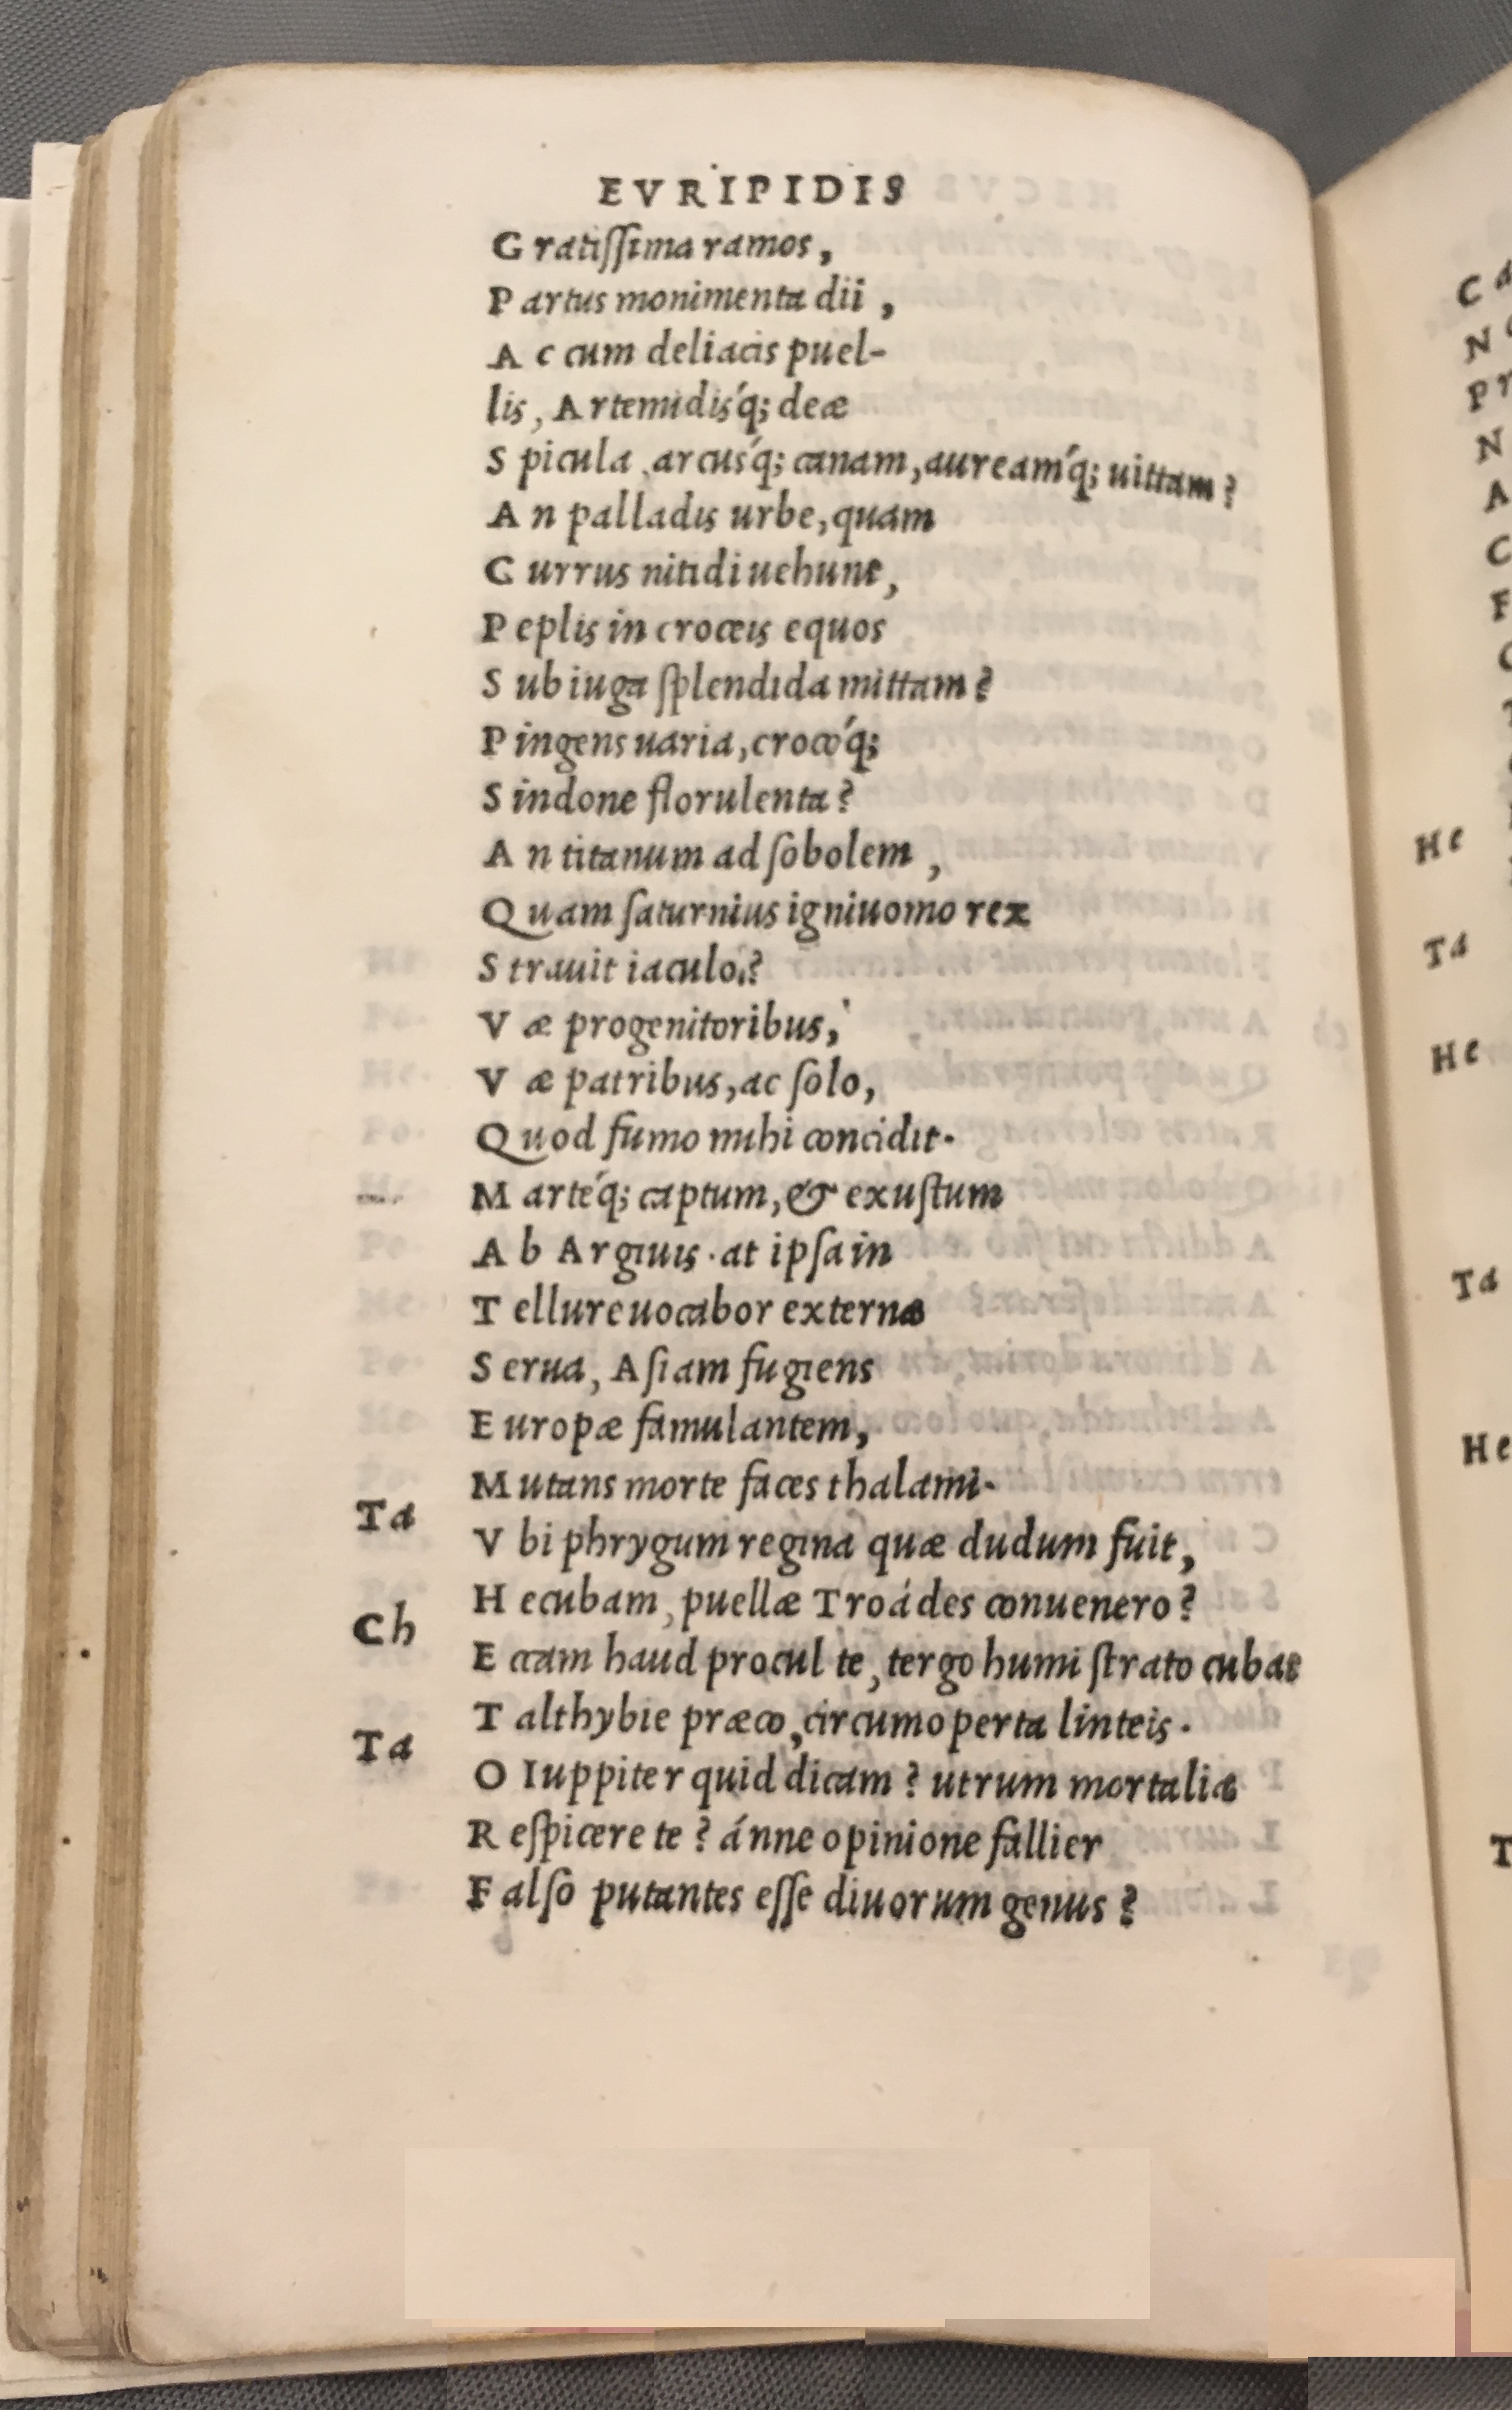 EVRIPIDIS
Gratiſſima ramos,
Partus monimenta dii,
Ac cum deliacis puel-
lis, Artemidisq́; deæ
Spicula arcusq́; canam, aureamq́; uittam?
An palladis urbe, quam
Currus nitidi uehunt,
Peplis in croceis equos
Sub iuga ſplendida mittam?
Pingens uaria, croceoq́;
Sindone florulenta?
An titanum ad ſobolem,
Quam ſaturnius igniuomo rex
Strauit iaculo?
Væ progenitoribus,
Væ patribus, ac ſolo,
Quod fumo mihi concidit.
Marteq́; captum, & exuſtum
Ab Argiuis. at ipſa in
Tellure uocabor externa
Serua, Aſiam fugiens
Europæ famulantem,
Mutans morte faces thalami.
Ta Vbi phrygum regina quæ dudum fuit,
Hecubam, puellæ Troádes conuenero?
Ch Eccam haud procul te, tergo humi ſtrato cubat
Talthybie præco, circumoperta linteis.
Ta O Iuppiter quid dicam? utrum mortalia
Reſpicere te? ánne opinione fallier
Falſo putantes eſſe diuorum genus?
He
Ta
He
Ta
He